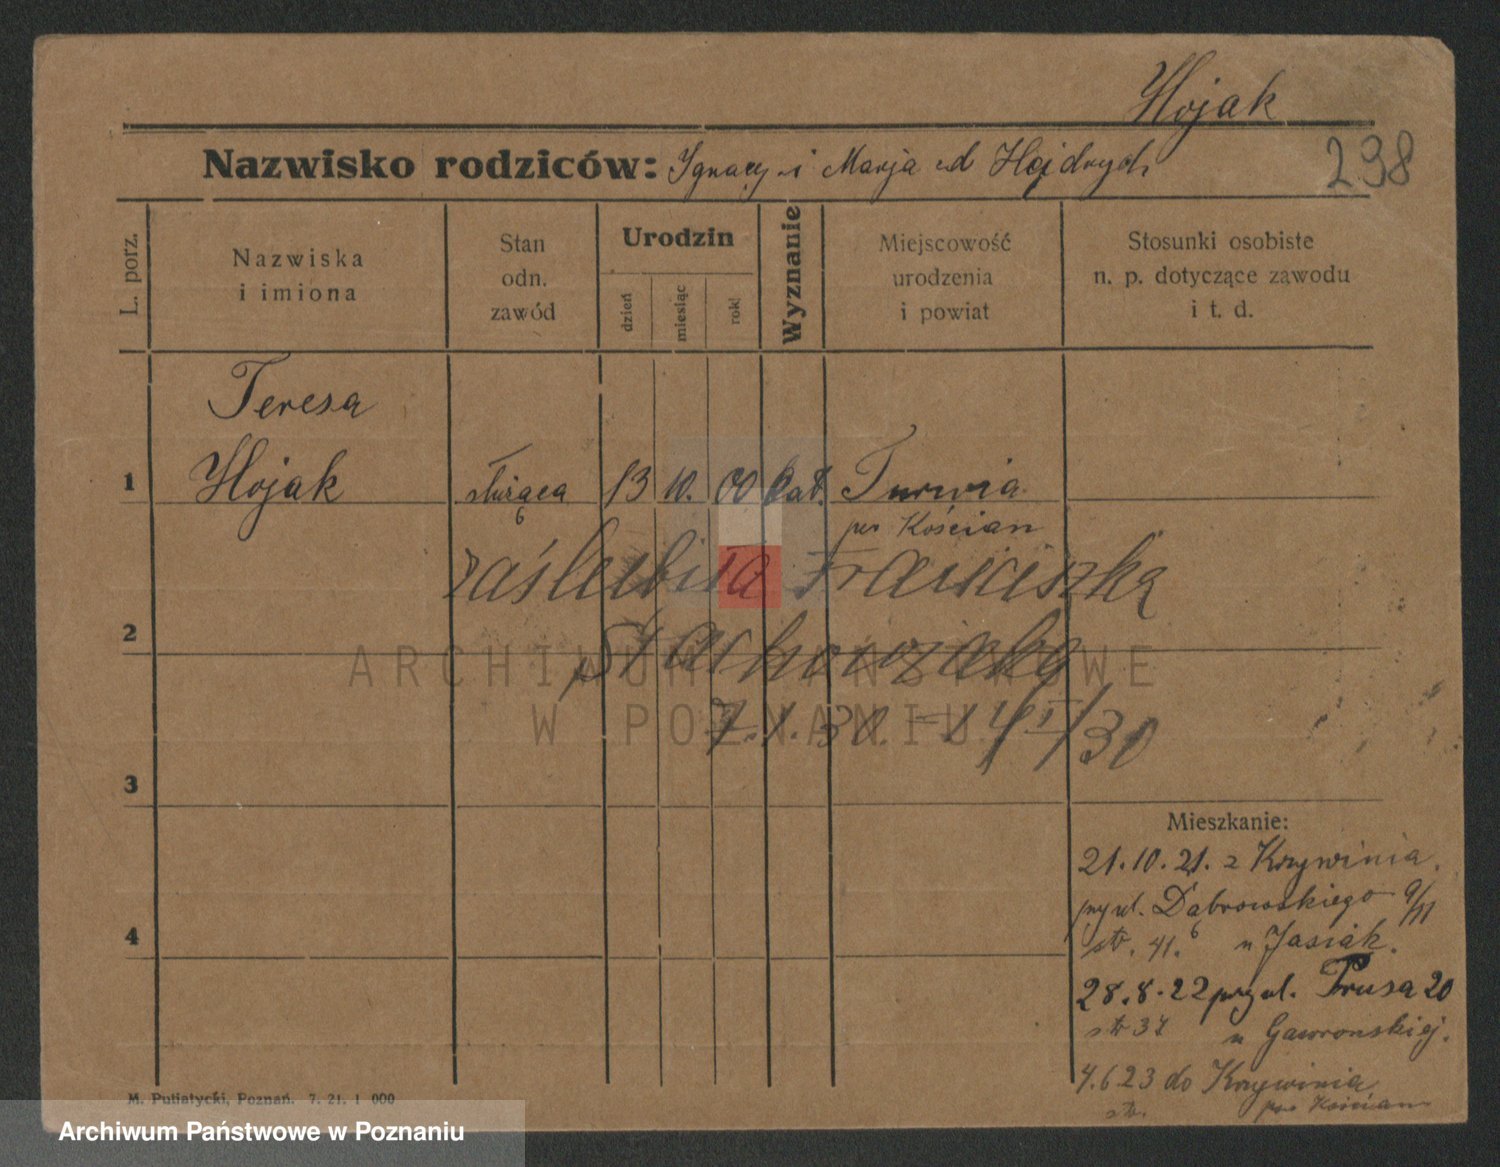 Hojak
Nazwisko rodziców: Ignacy i Marja d Hejdrych
238
L. porz.
Nazwiska
i imiona
Stan
odn.
zawód
Urodzin
dzień
miesiąc
rok
Wyznanie
Miejscowość
urodzenia
i powiat
Stosunki osobiste
n. p. dotyczące zawodu
i t. d.
Teresa
1 Hojak służąca 13 10. 00 kat. Turwia
6 pow Kościan
zaślubiła Franciszka
2
Stachowiaka
7.1.30. = 14/I/30
3
Mieszkanie:
21.10.21. z Krzywinia.
przy ul. Dąbrowskiego 9/III
4
str. 41.6 u Jasiak.
28.8.22 przy ul. Prusa 20
str 37 u Gawronskiej.
4.6 23 do Krzywinia
str. pow Kościan
M. Putiatycki, Poznań. 7. 21. 1 000
ARCHIWUM PAŃSTWOWE
W POZNANIU
Archiwum Państwowe w Poznaniu